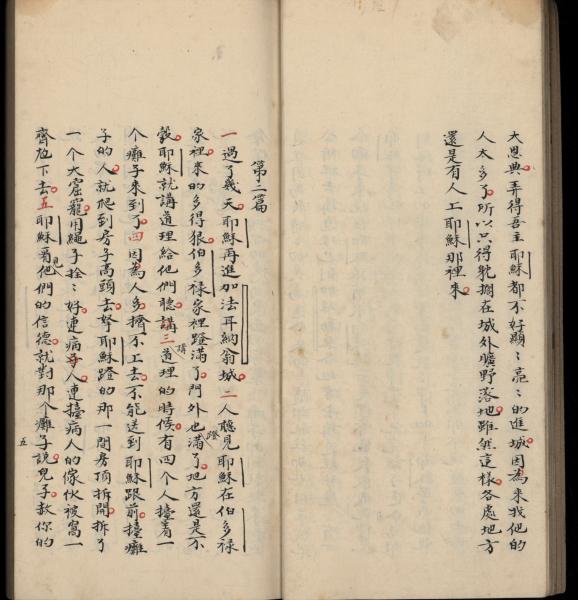 大恩典弄得吾主耶穌都不好顯〻亮〻的進城因為來找他的
人太多了所以只得躭擱在城外曠野落地雖然這樣各處地方
還是有人上耶穌那裡來
第二篇
一過了幾天耶穌再進加法耳納翁城二人聽見耶穌在伯多祿
家裡來的多得狠伯多祿家裡蹬滿了門外也滿了地方還是不
彀耶穌就講道理給他們聽講三道理的時候有四个人擡着一
个癱子來到了四因為人多擠不上去不能送到耶穌跟前擡癱
子的人就爬到房子高頭去拏耶穌蹬的那一間房頂拆開拆了
一个大窟窿用繩子拴〻好連病人連擡病人的傢伙被窩一
齊放下去五耶穌看見他們的信德就對那个癱子說兒子赦你的
五